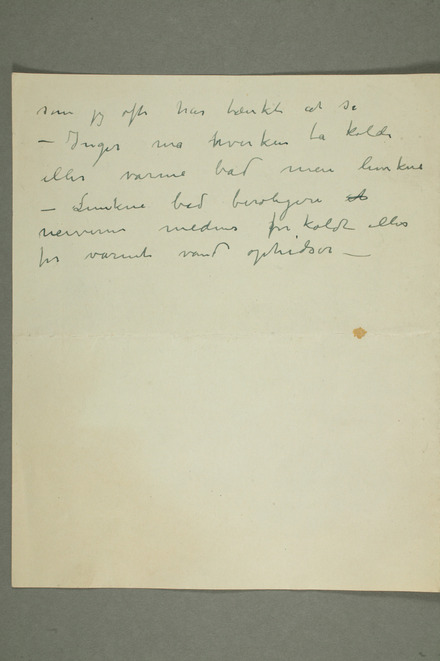 som jeg ofte har tænkt at se
– Inger må hverken ta kolde
eller varme bad men lunkne
– Lunkne bad beroliger
nerverne medens for koldt eller
for varmt vand ophidser –